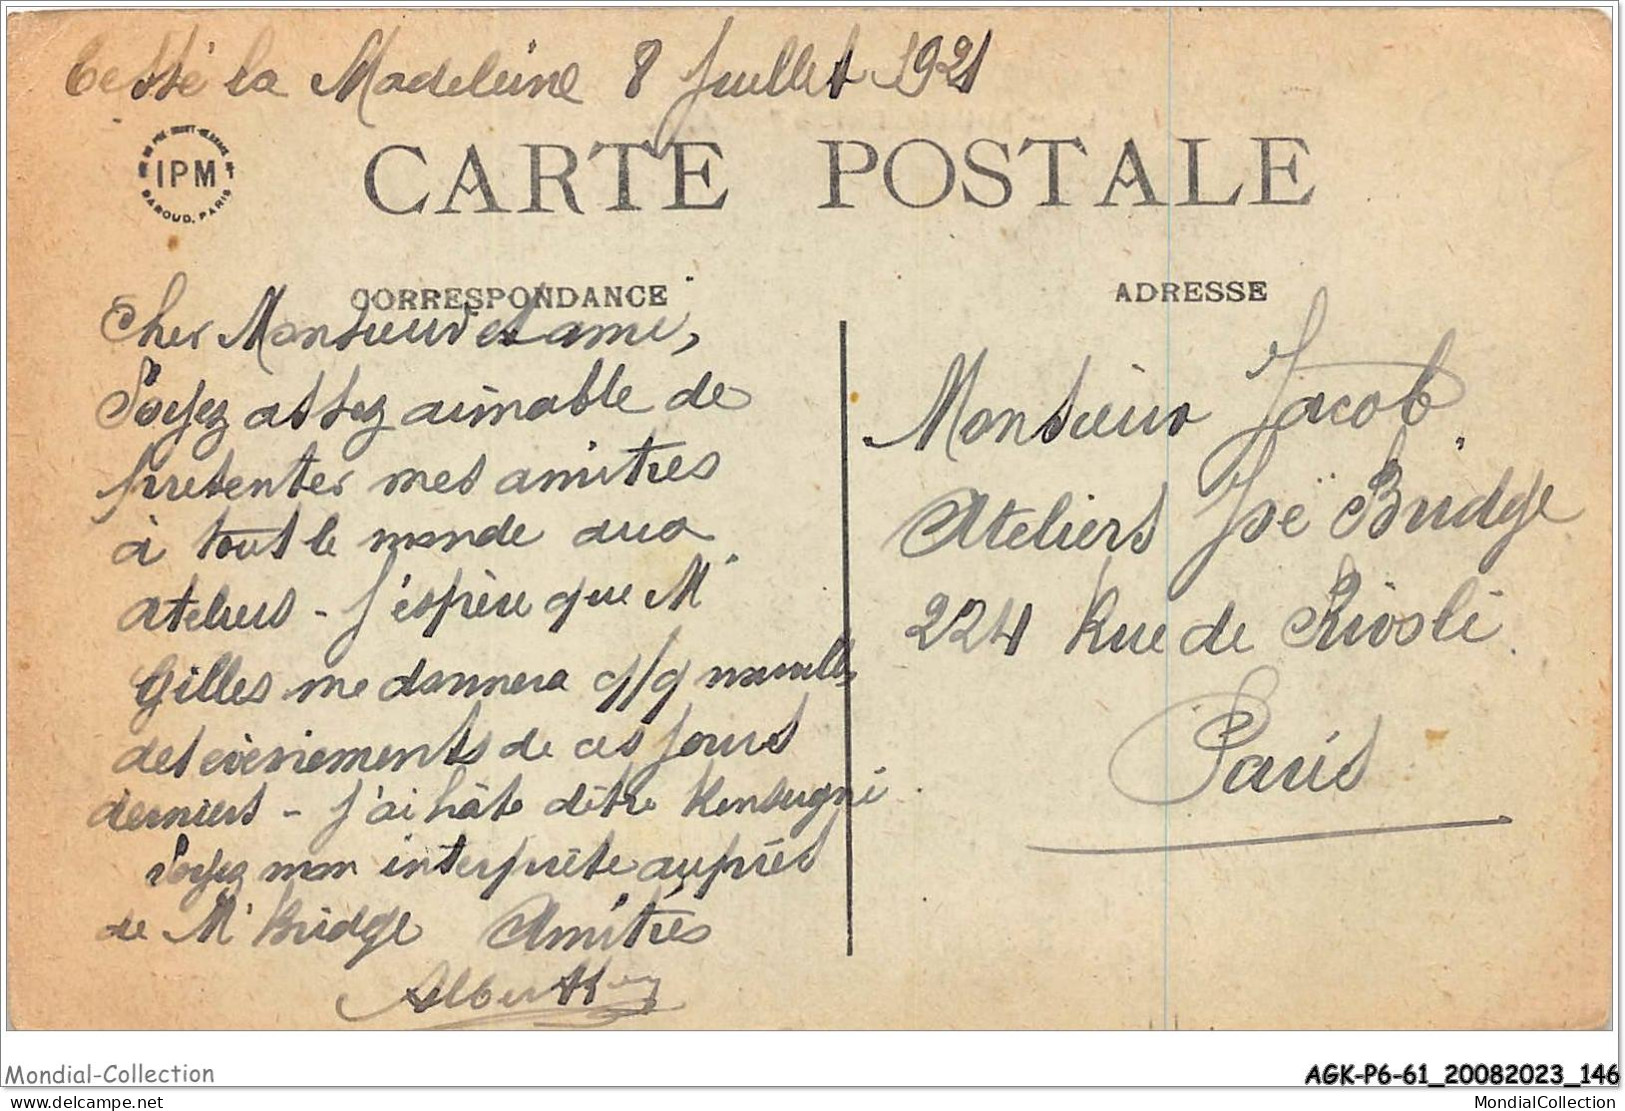 Tessé la Madeleine 8 Juillet 1921
IPM
BAROUD. PARIS
CARTE POSTALE
CORRESPONDANCE
ADRESSE
Cher Monsieur et ami,
Soyez assez aimable de
presenter mes amitiés
à tout le monde aux
ateliers - J'espère que Mr
Gilles me donnera q/q nouvelles
des évènements de ces jours
derniers - J'ai hâte d'être renseigné
Soyez mon interprète auprès
de Mr Bridge Amitiés
Albert
Monsieur Jacob
Ateliers Joë Bridge
224 Rue de Rivoli
Paris
Mondial-Collection
AGK-P6-61_20082023_146
delcampe.net
MondialCollection